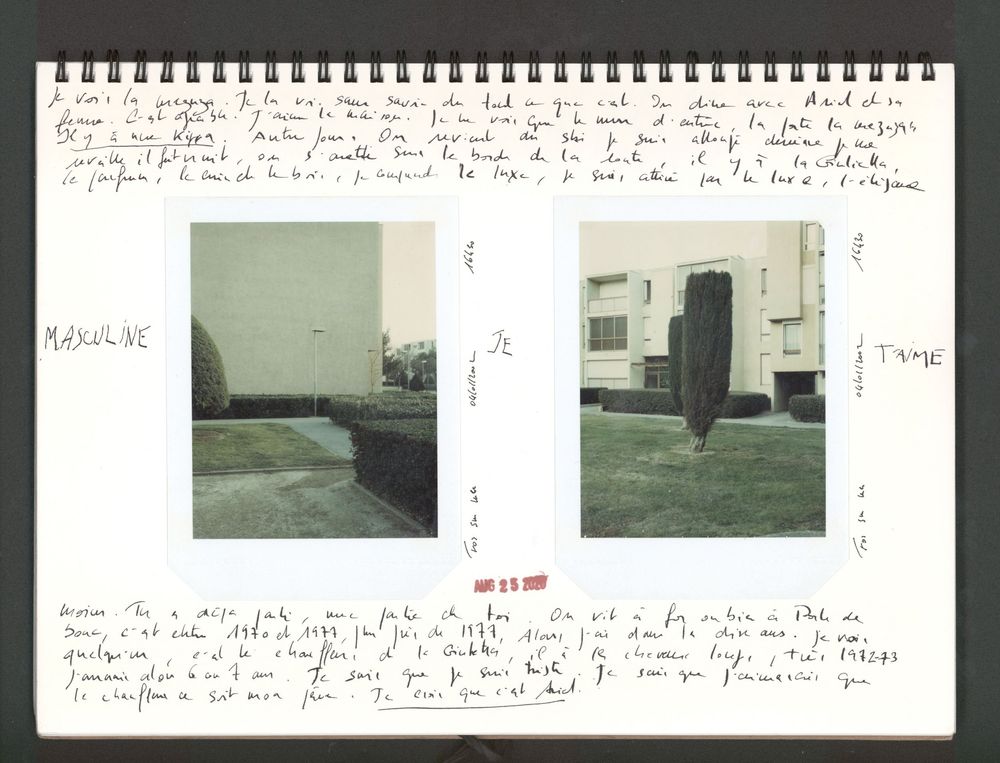 Je vois la mezuza. Je la vois sans savoir du tout ce que c'est. On dine avec Ariel et sa
femme. C'est agréable. J'aime la maison. Je ne vois que le mur d'entrée, la porte la mezuza
Il y à une Kippa. Autre jour. On revient du ski je suis allongé derrière je me
reveille il fait nuit, on s'arrette sur le bord de la route, il y à la Giulietta,
le parfum, le cuir le bois, je comprends le luxe, je suis attiré par le luxe, l'élégance
MASCULINE
16h30
04/01/2002
Fos sur Mer
JE
16h30
04/01/2002
Fos sur Mer
T'AIME
AUG 25 2020
moins. Tu a déja parlé, une partie de toi. On vit à Fos ou bien à Port de
bouc, c'est entre 1970 et 1977, plus près de 1977, Alors j'ai dans les dix ans. Je vois
quelqu'un, c'est le chauffeur de la Giulietta, il à les cheveux longs, très 1972-73
J'aurais alors 6 ou 7 ans. Je sais que je suis triste. Je sais que j'aimerais que
le chauffeur ce soit mon père. Je crois que c'est Ariel.